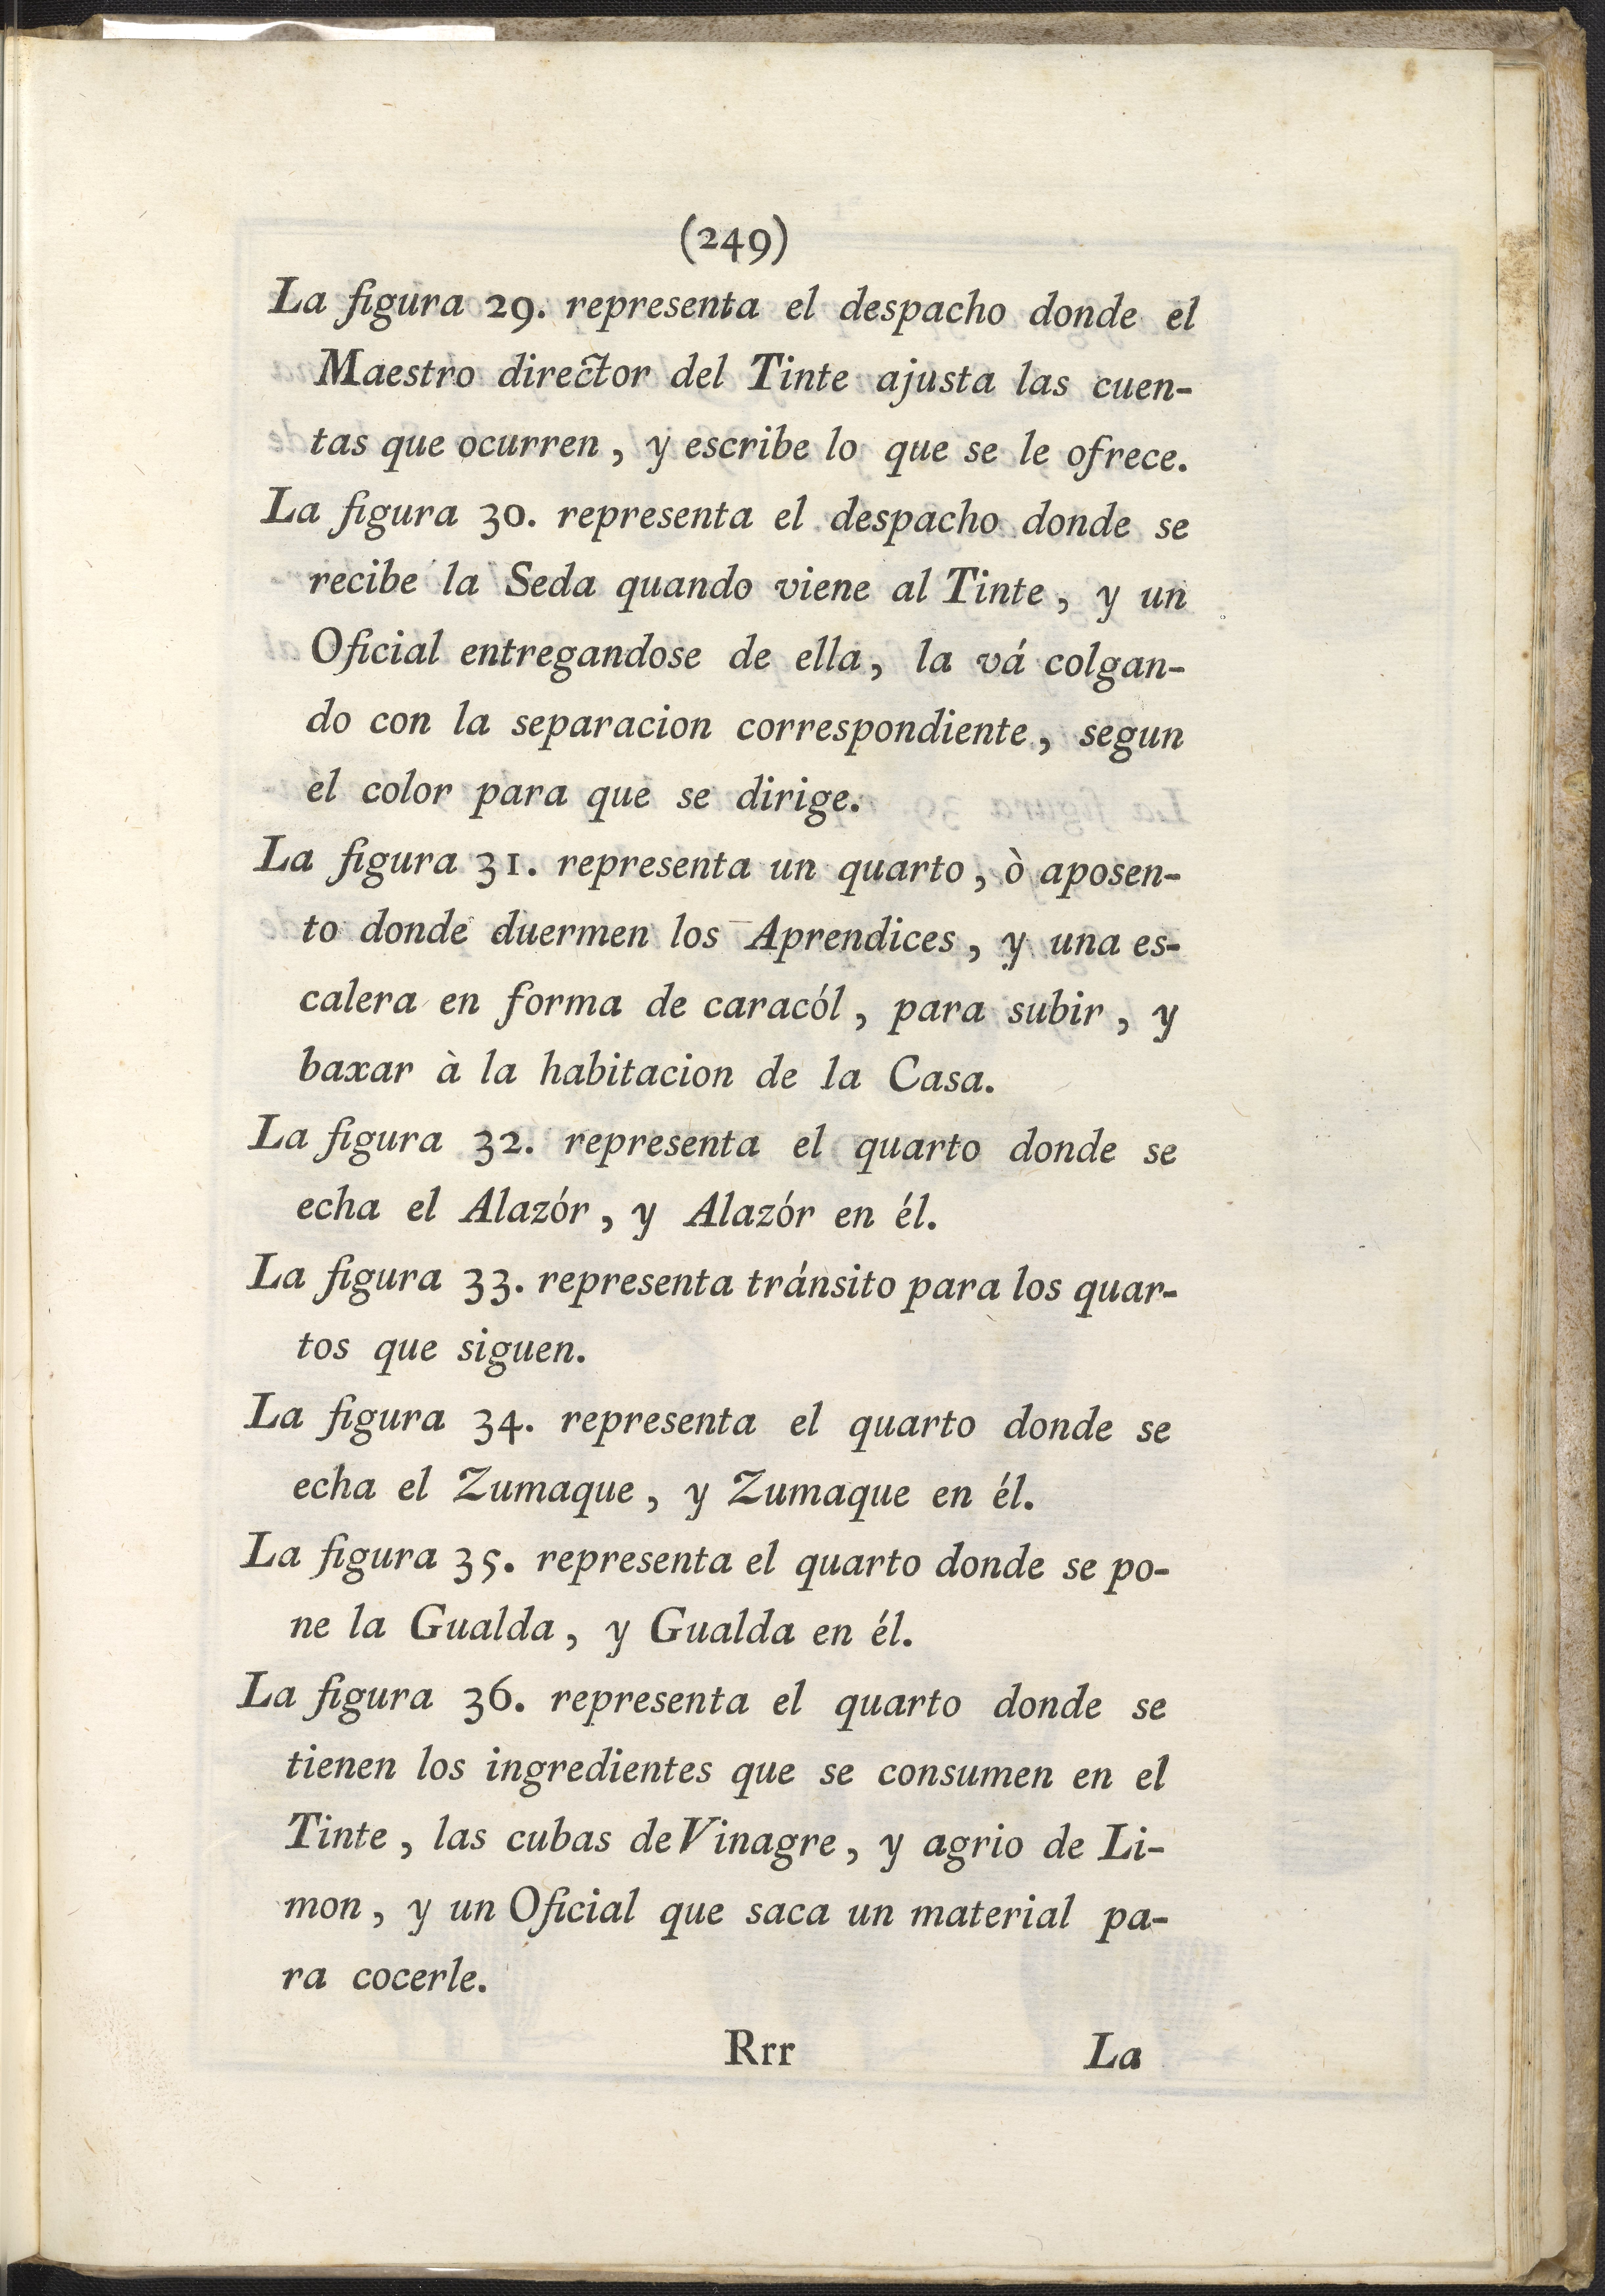 (249)
La figura 29. representa el despacho donde el
Maestro director del Tinte ajusta las cuen-
tas que ocurren, y escribe lo que se le ofrece.
La figura 30. representa el despacho donde se
recibe la Seda quando viene al Tinte, y un
Oficial entregandose de ella, la vá colgan-
do con la separacion correspondiente, segun
el color para que se dirige.
La figura 31. representa un quarto, ò aposen-
to donde duermen los Aprendices, y una es-
calera en forma de caracól, para subir, y
baxar à la habitacion de la Casa.
La figura 32. representa el quarto donde se
echa el Alazór, y Alazór en él.
La figura 33. representa tránsito para los quar-
tos que siguen.
La figura 34. representa el quarto donde se
echa el Zumaque, y Zumaque en él.
La figura 35. representa el quarto donde se po-
ne la Gualda, y Gualda en él.
La figura 36. representa el quarto donde se
tienen los ingredientes que se consumen en el
Tinte, las cubas de Vinagre, y agrio de Li-
mon, y un Oficial que saca un material pa-
ra cocerle.
Rrr La